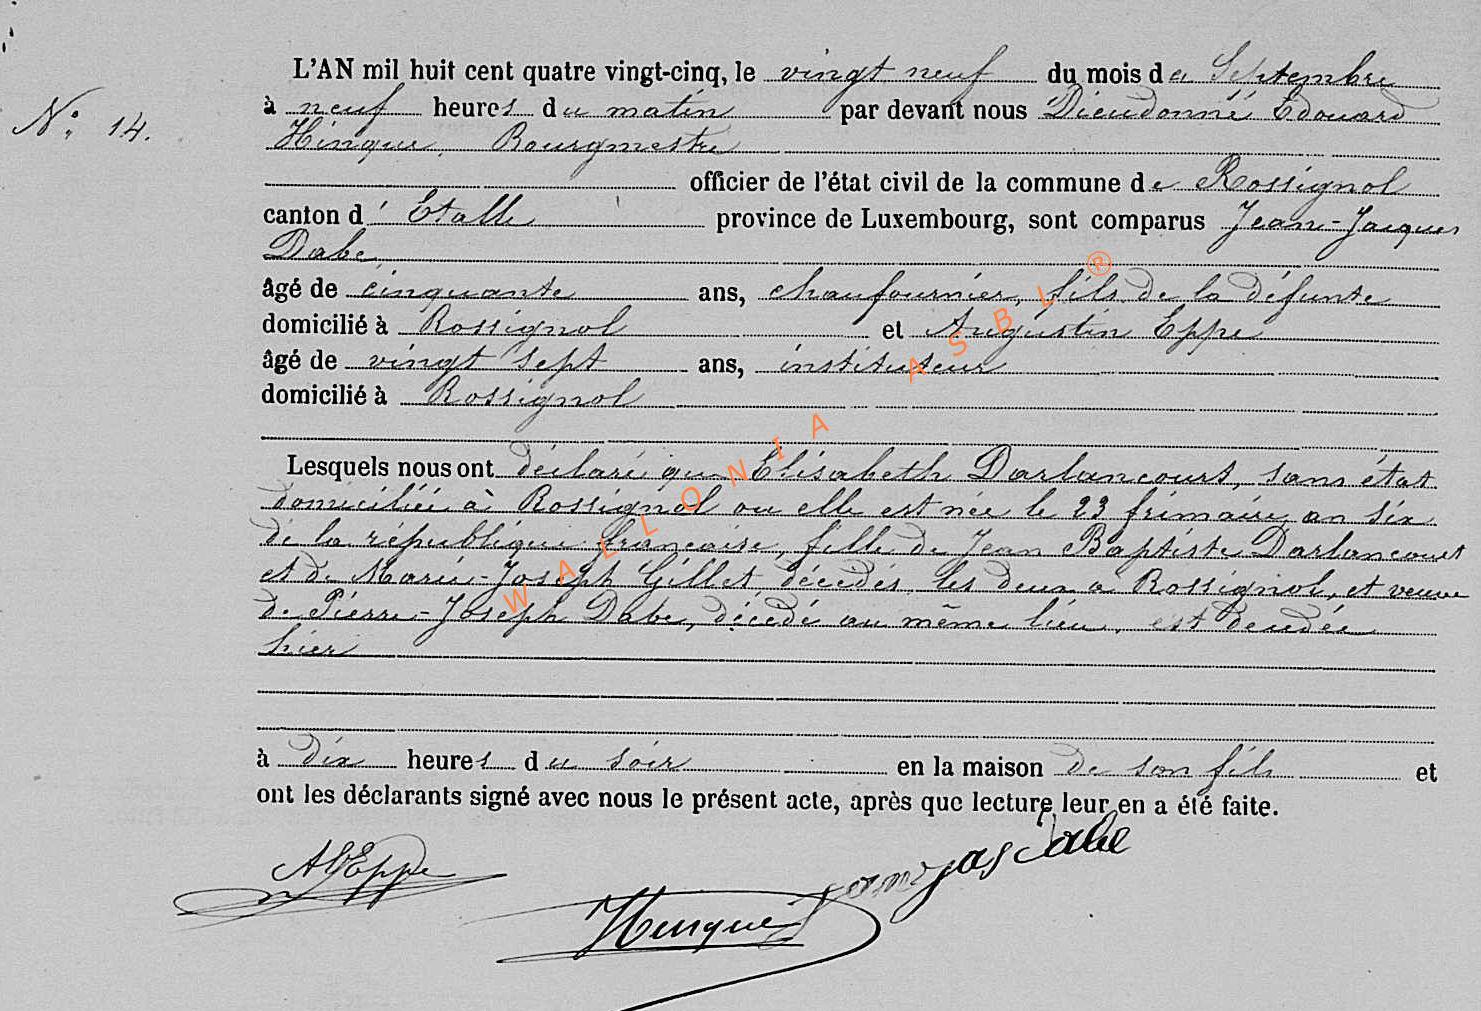 L'AN mil huit cent quatre vingt-cinq, le vingt neuf du mois de Septembre
N° 14.
à neuf heures du matin par devant nous Dieudonné Edouard
Hinque, Bourgmestre
officier de l'état civil de la commune de Rossignol
canton d'Etalle province de Luxembourg, sont comparus Jean-Jacques
Dabe
âgé de cinquante ans, chaufournier, fils de la défunte
domicilié à Rossignol et Augustin Eppe
âgé de vingt sept ans, instituteur
domicilié à Rossignol
Lesquels nous ont déclaré que Elisabeth Darlancourt, sans état
domiciliée à Rossignol ou elle est née le 23 frimaire an six
de la république française, fille de Jean Baptiste Darlancourt
et de Marie-Joseph Gillet décédés les deux a Rossignol, et veuve
de Pierre-Joseph Dabe, décédé au même lieu, est décédée
hier
à dix heures du soir en la maison de son fils et
ont les déclarants signé avec nous le présent acte, après que lecture leur en a été faite.
AEppe
jas dabe
Hinque
WALLONIA ASBL ®